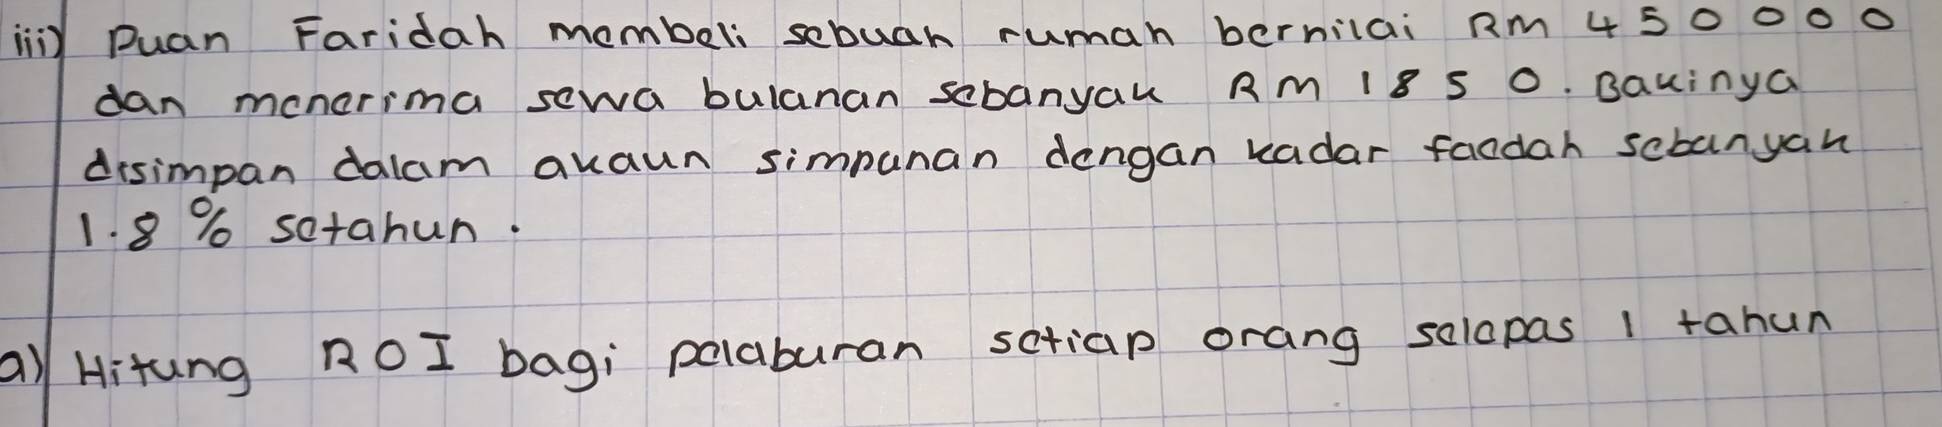 iii) Puan Faridah membeli sebuah rumah bernilai RM 450000
dan menerima sewa bulanan sebanyak RM 1850. Bakinya
disimpan dalam akaun simpanan dengan kadar faedah sebanyak
1.8% setahun.
a) Hitung ROI bagi pelaburan setiap orang selepas 1 tahun